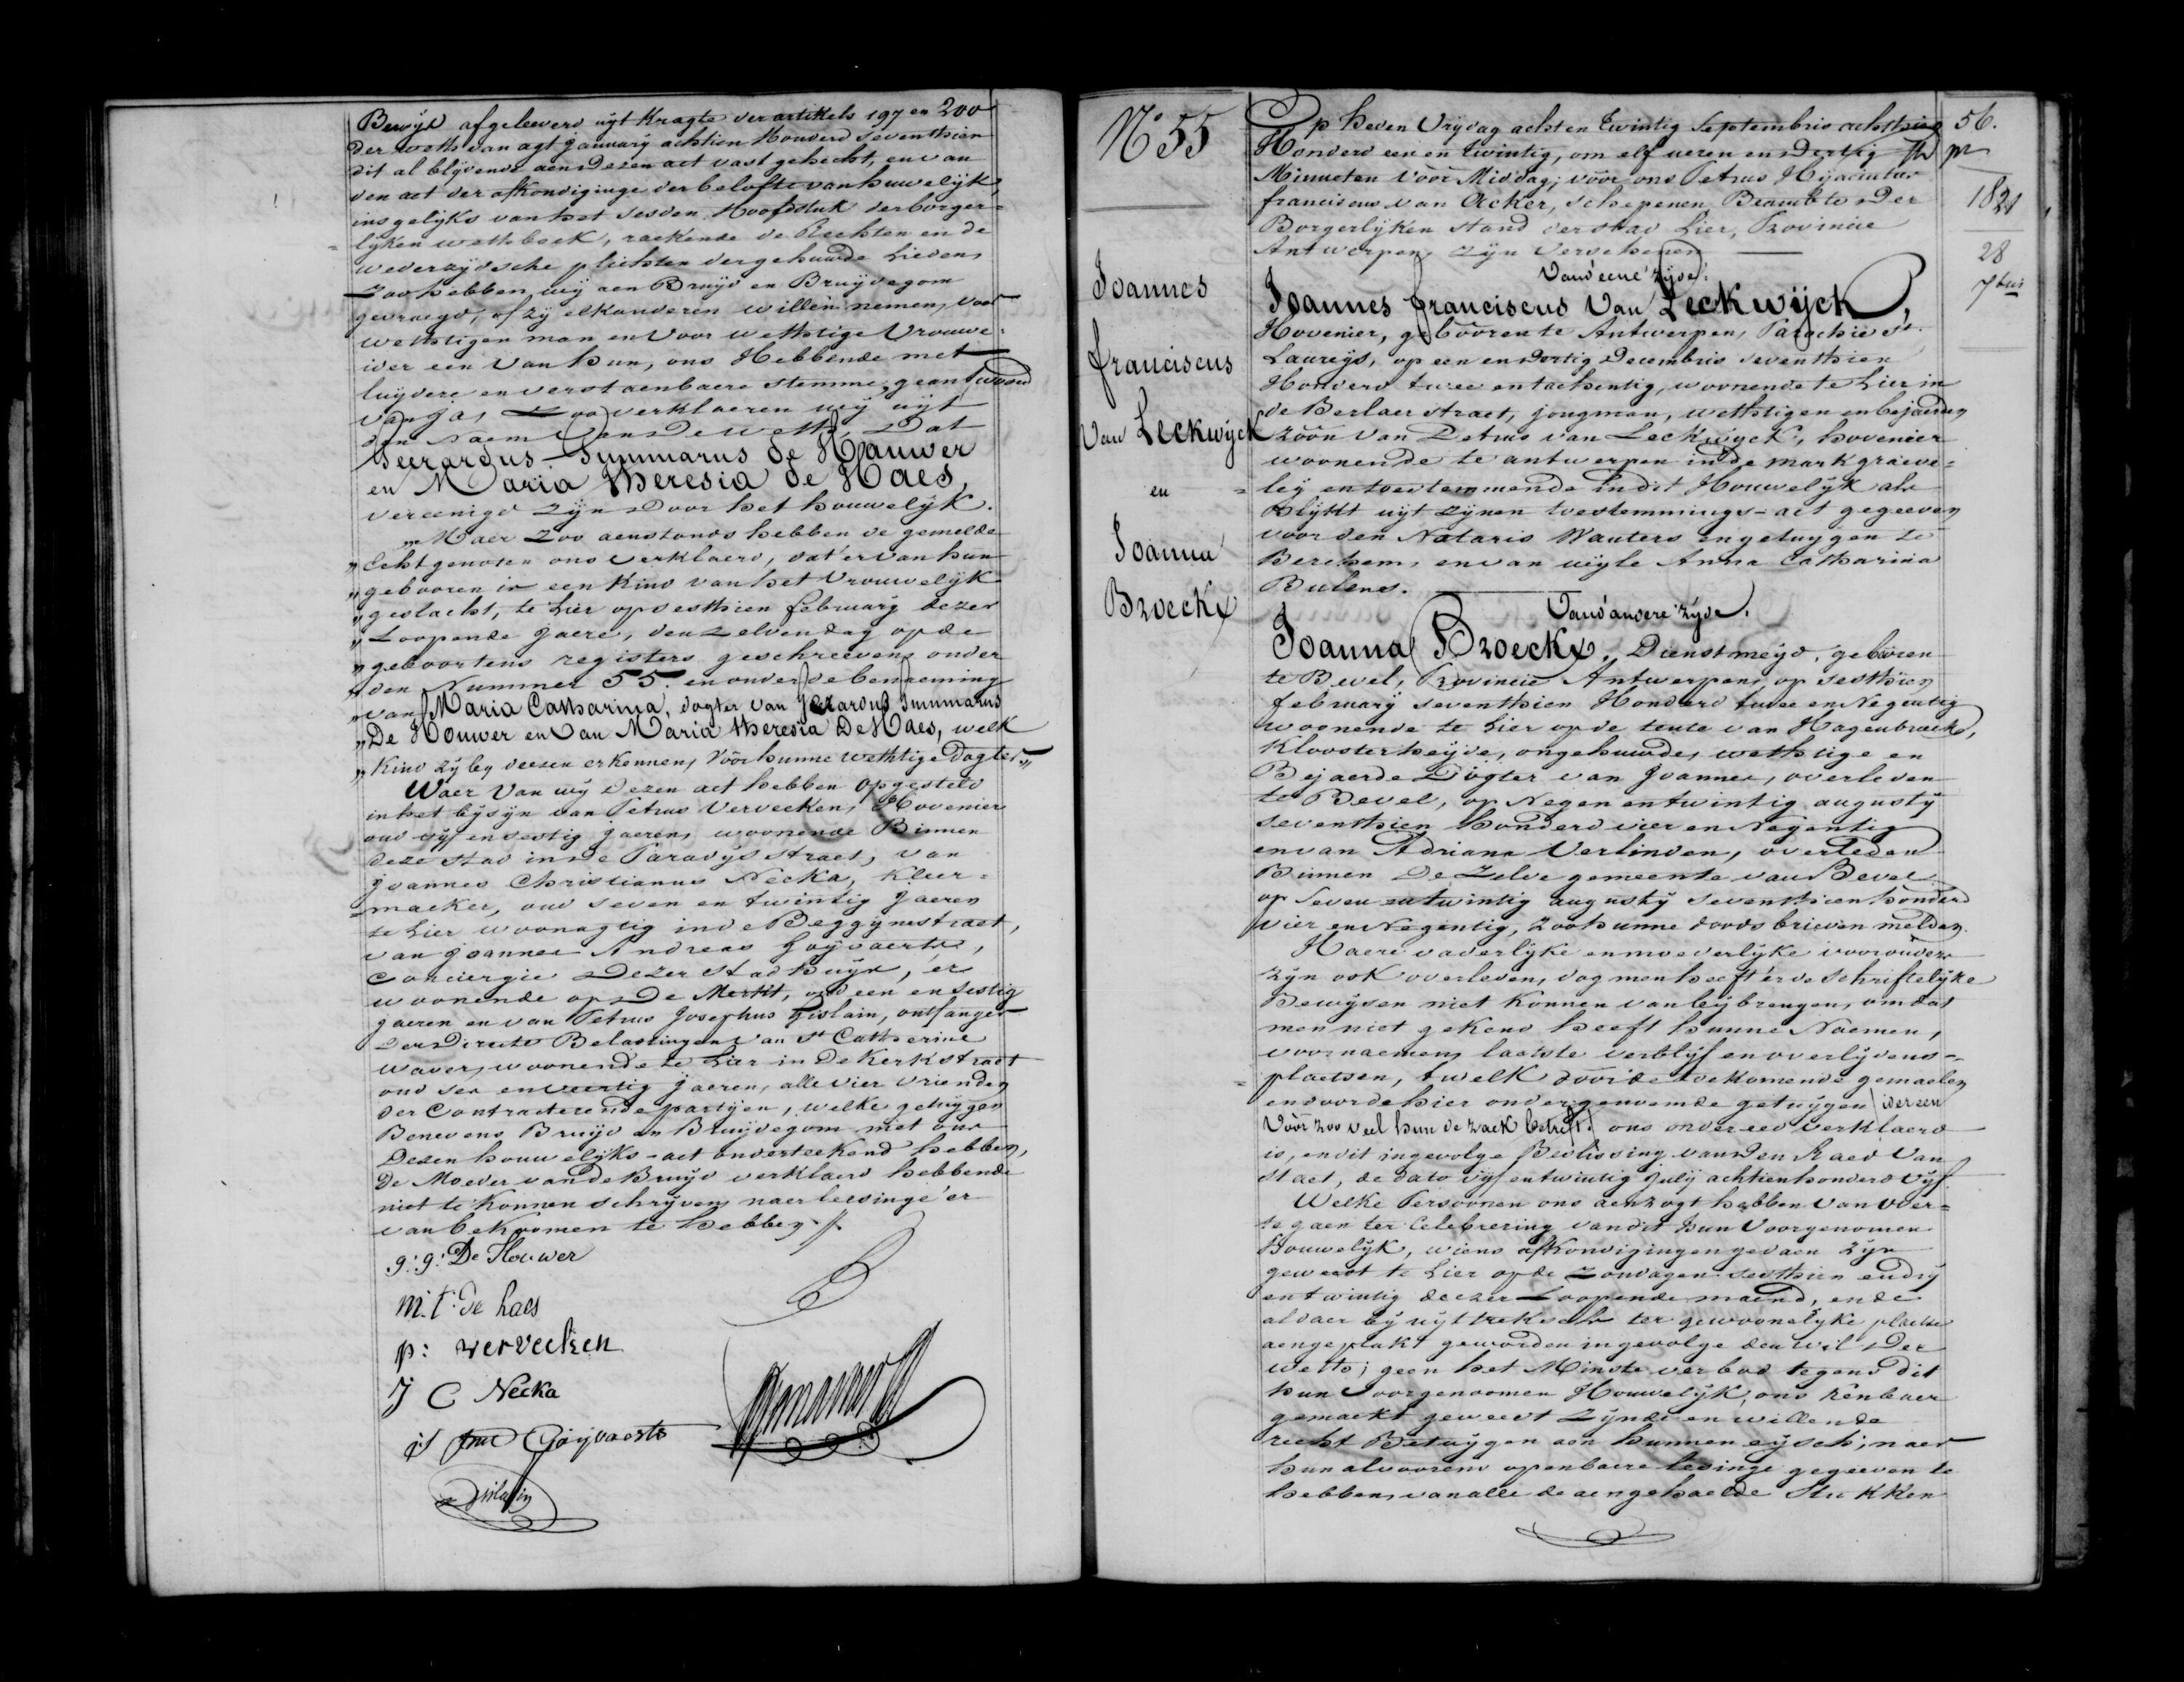 Bewijs afgeleverd uijt kragte der artikels 197 en 200
der weth van agt January achtien honderd seventhien
dit al blijvende aen dezen act vast gehecht, en van
den act der afkondiginge der belofte van huwelijk,
insgelijks van het sesden Hoofdstuk der borger=
lijken wethboek, raekende de Rechten en de
wederzijdsche plichten der gehuwde Lieden,
Zoo hebben wij aen Bruijd en Bruijdegom
gevraegd, of zij elkanderen willen nemen, voor
wethtigen man en voor wethtige Vrouwe:
ider een van hun, ons Hebbende met
luijdere en verstaenbaere stemme, geantwoord
van Ja, Zoo verklaeren wij uijt
den Naem van de weth, Dat
Geerardus Gummarus de Hauwer
en Maria Theresia de Haes,
vereenigd zijn door het houwelijk.
„Maer Zoo aenstonds hebben de gemelde
„Echtgenoten ons verklaerd, dat'er van hun
„gebooren is een kind van het Vrouwelijk
„geslacht, te Lier op sesthien february dezer
„Loopende Jaere, den zelven dag op de
„geboortens registers geschreeven, onder
„den Nummer 55. en onder de benaeming
„van Maria Catharina, dogter van Gerardus Gummarus
„De Houwer en van Maria Theresia De Haes, welk
„Kind zij bij deezen erkennen, vóór hunne wethtige Dogter.„
Waer van wij dezen act hebben opgesteld
in het bijsijn van Petrus Vervecken, Hovenier
oud vijf en sestig Jaeren, woonende Binnen
deze stad in de Paradijs straet, van
Joannes Christianus Necka, kleer=
=maeker, oud seven en twintig Jaeren
te Lier woonagtig in de Beggijnestraet,
van Joannes Andreas Goijvaerts,
Conciergie dezer stadhuijs, er
woonende op de Merkt, oud een en sestig
Jaeren en van Petrus Josephus Gislain, ontfanger
der directe Belastingen van St Catherine
waver, woonende te Lier in de kerkstraet
oud ses en veertig Jaeren, alle vier vrienden
der Contracterende partijen, welke getuijgen
Benevens Bruijd en Bruijdegom met ons
Dezen houwelijks-act onderteekend hebben,
De Moeder van de Bruijd verklaerd hebbende
niet te konnen schrijven, naer leesinge'er
van bekoomen te hebben.
g: g: De Houwer
m: t: de haes
p: vervecken
J C Necka
Goijvaerts
Gislain
N° 55
Joannes
franciscus
Van Leckwijck
en
Joanna
Broeckx
Op heden Vrijdag achten twintig Septembris achthien
Honderd een en twintig, om elf ueren en dertig
Minuten vóór Middag; vóór ons Petrus Hijacintus
franciscus van Acker, schepenen Beambte der
Borgerlijken stand der stad Lier, Provincie
Antwerpen, zijn verschenen
Van d'eene zijde:
Joannes franciscus Van Leckwijck,
Hovenier, gebóóren te Antwerpen, Parochie St.
Laureijs, op een en dertig Decembris seventhien
Honderd twee en tachentig, woonende te Lier in
de Berlaer straet, jongman, wethtigen en bejaerden
zóón van Petrus van Leckwijck, hovenier
woonende te antwerpen in de markgraeve=
=leij en toestemmende in dit Houwelijk als
Blijkt uijt zijnen toestemmings-act gegeeven
voor den Notaris Wauters en getuijgen te
Berchem, en van wijle Anna Catharina
Bulens.
Van d'andere zijde.
Joanna Broeckx, Dienstmeijd, gebóóren
te Bevel, Provincie Antwerpen, op sesthien
february seventhien Honderd twee en Negentig
woonende te Lier op de tente van Hagenbroecks,
Kloosterheijde, ongehuwde, wethtige en
Bejaerde Dogter van Joannes, overleden
te Bevel, op Negen en twintig augusty
seventhien honderd vier en Negentig
en van Adriana Verlinden, overleden
Binnen De Zelve gemeente van Bevel
op Seven en twintig augusty seventhien honderd
vier en Negentig, zoo hunne doods brieven melden.
Haere vaderlijke en moederlijke voorouders
zijn ook overleden, dog men heeft'er de schriftelijke
Bewijsen niet konnen van bijbrengen, om dat
men niet gekend heeft hunne Naemen,
voornaemen, laatste verblijf en overlijdens-
=plaetsen, twelk door de toekomende gemaelen
en door de hier ondergenoemde getuijgen (ider een
vóór zoo veel hun de zaek betreft) ons onder eed verklaerd
is, en dit ingevolge Beslissing van den Raed van
Staet, de dato vijf en twintig Julij achtienhonderd vijf.
Welke Persoonen ons aenzogt hebben van over=
te gaen ter Celebrering van dit hun Voorgenomen
Houwelijk, wiens afkondigingen gedaen zijn
geweest te Lier op de zondagen sesthien en drij
en twintig deezer Loopende maend, en de
aldaer bij uijttreksels ter gewoonelijke plaetse
aengeplakt geworden ingevolge den wil der
weth; geen het Minste verbod tegens dit
hun voorgenoomen Houwelijk, ons kenbaer
gemaekt geweest zijnde en willende
recht Betuijgen aen hunnen eijsch; naer
hun alvoorens openbaere lesinge gegeeven te
hebben, van alle de aengehaelde Stukken
56.
1821
28
7bris